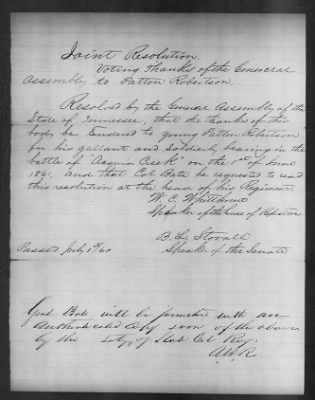 Joint Resolution.
Voting Thanks of the General
Assembly to Patton Robertson.
Resolved by the General Assembly of the
State of Tennessee, that the thanks of this
body be tendered to young Patton Robertson
for his gallant and soldierly bearing in the
battle of "Aquia Creek" on the 1st of June
and that Col Bate be requested to read
this resolution at the head of his Regiment
W. C. Whitthorne
Speaker of the House of
B. L. Stovall
Speaker of the Senate
Passed July 1st
Genl Bate will be furnished with an
Authenticated copy soon of the above
by the of State Col Ray.